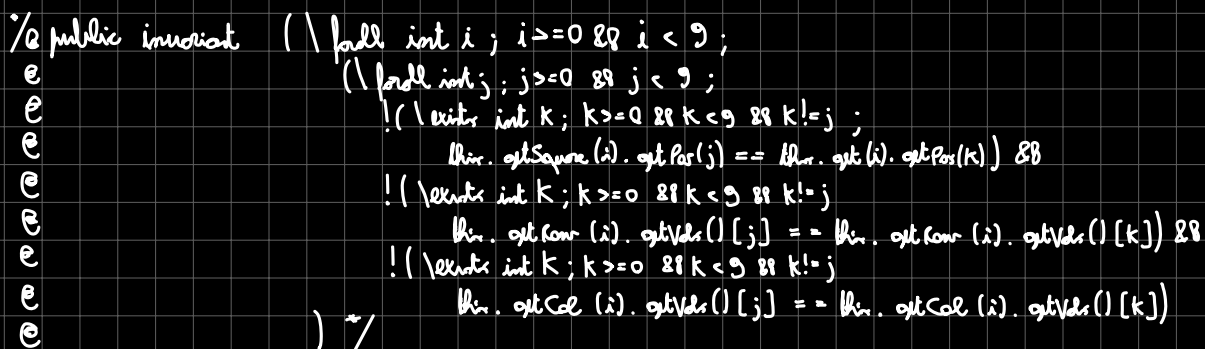 /@ public invariant (\forall int i ; i>=0 && i < 9 ;
@ (\forall int j ; j>=0 && j < 9 ;
@ !(\exists int k ; k>=0 && k<9 && k!=j ;
@ this. getSquare (i). getPos(j) == this. get (i). getPos(k)) &&
@ !(\exists int k ; k>=0 && k<9 && k!=j
@ this. getRow (i). getVals()[j] == this. getRow (i). getVals()[k]) &&
@ !(\exists int k ; k>=0 && k<9 && k!=j
@ this. getCol (i). getVals()[j] == this. getCol (i). getVals()[k])
@ ) */